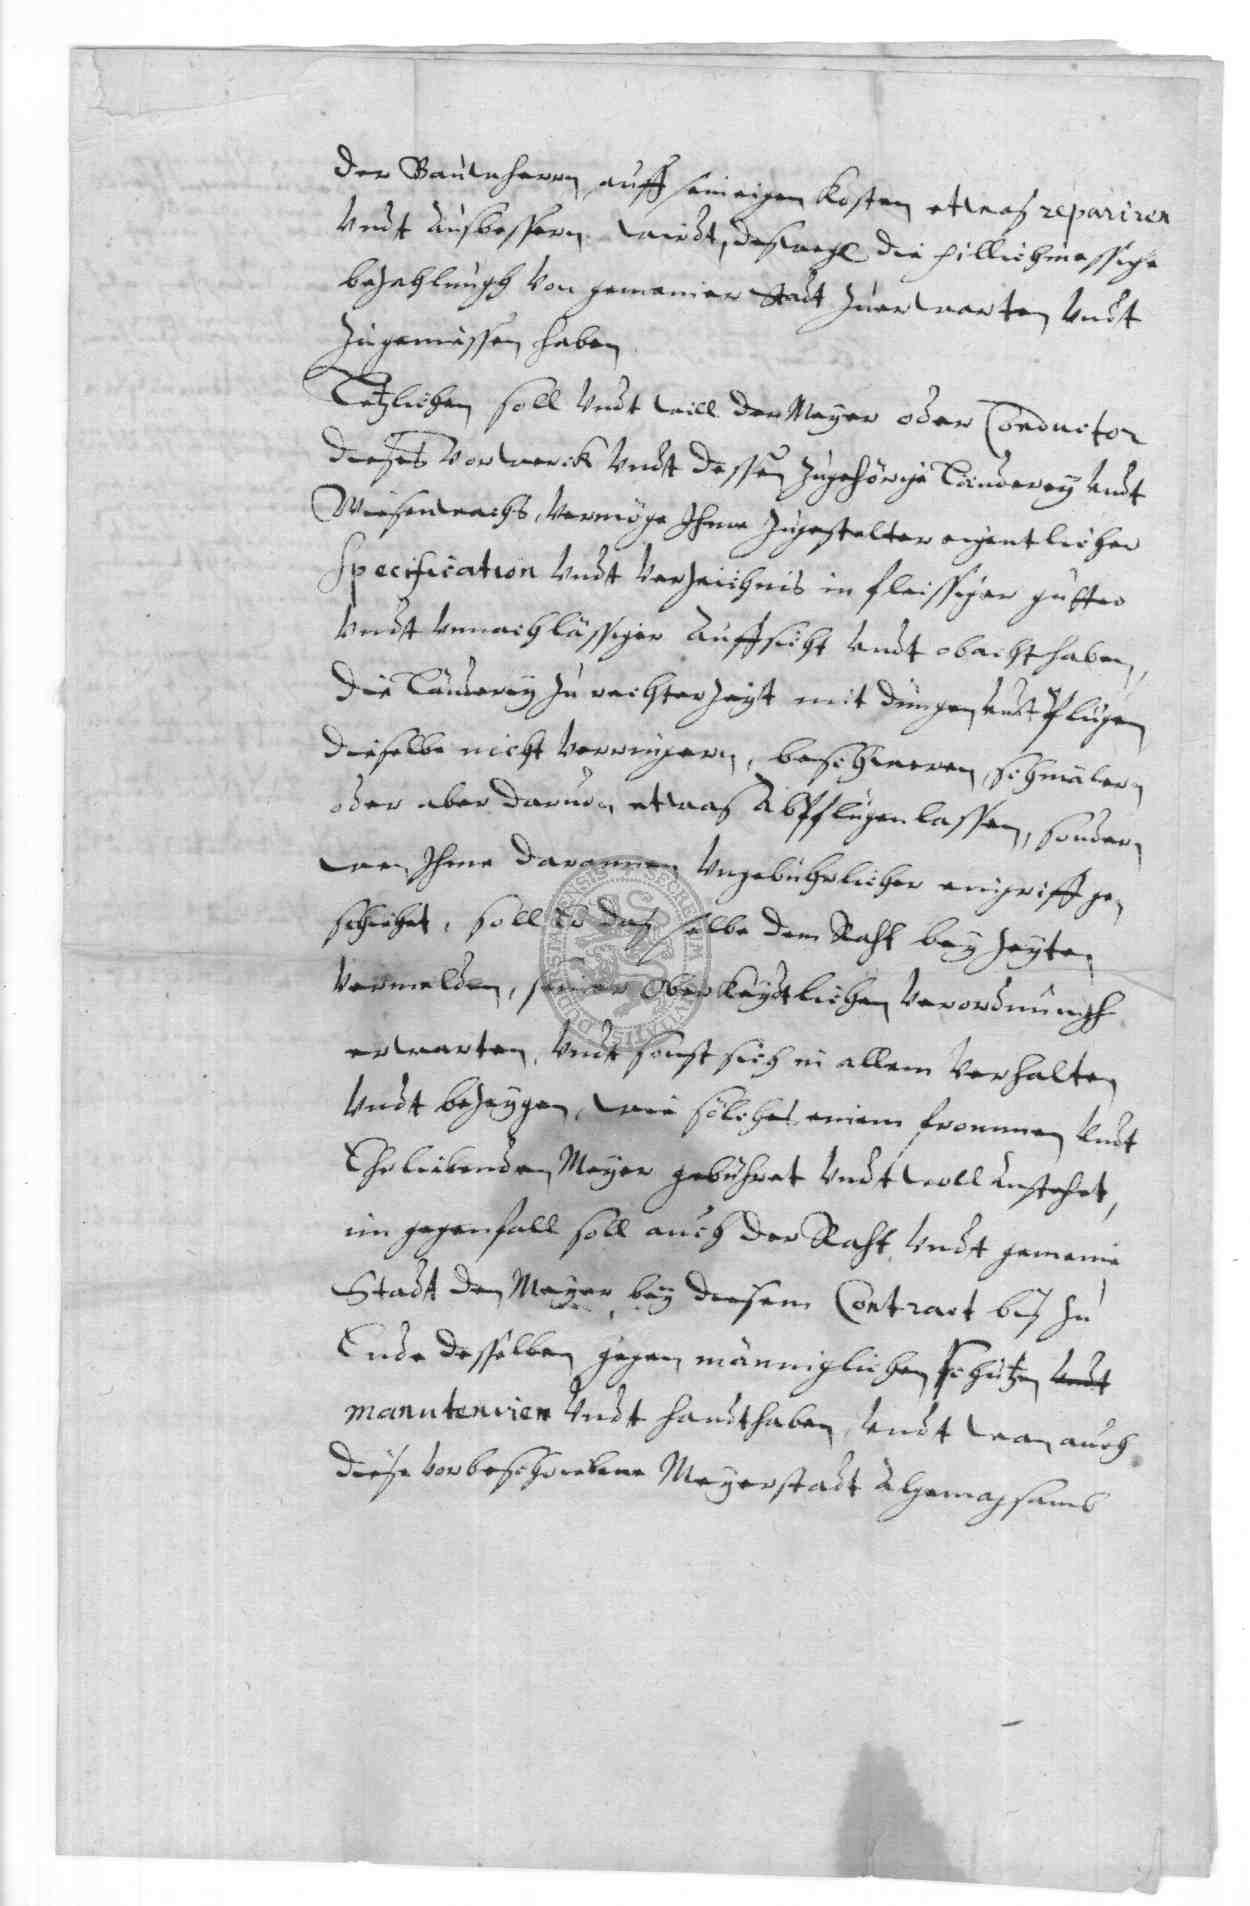 der Bauwherrn, auff sein eigen Kosten etwas repariren
vndt ausbessern wirdt, deswegl die pillichmessige
bezahlungh von gemeiner Stadt zuerwarten vndt
zugeniessen haben
Letzlichen soll vndt will der Meyer oder Conductor
dieses Vorwerck vndt dessen zugehörige Länderey vndt
Wiesenwachs, vermöge Ihme zugestelter eigentlicher
Specification vndt Verzeichnis in fleissiger gutter
vndt vnnachlässiger auffsicht vndt obacht haben,
die Länderey zu rechter zeyt mit düngen vndt Pflügen
dieselbe nicht verringern, beschweren, schmälern
oder aber daruon etwas abpflügen lassen, sondern
wen Ihme darannen vngebührlicher eingriff ge-
schiehet, soll er das selbe dem Raht bey zeyten
vermelden, seiner Oberkeydtlichen verordnungh
erwarten, vndt sonst sich in allem verhalten
vndt bezeygen, wie solches einem frommen vndt
Ehrliebenden Meyer gebühret vndt woll anstehet,
im gegenfall soll auch der Raht vndt gemeine
Stadt den Meyer bey diesem Contract bis zu
Ende desselben gegen männiglichen schützen vndt
manutenieren vndt handthaben, vndt wan auch
diese vorbeschriebene Meyerstadt algemachsamb
SECRETUM CIVITATIS DUDERSTADENSIS